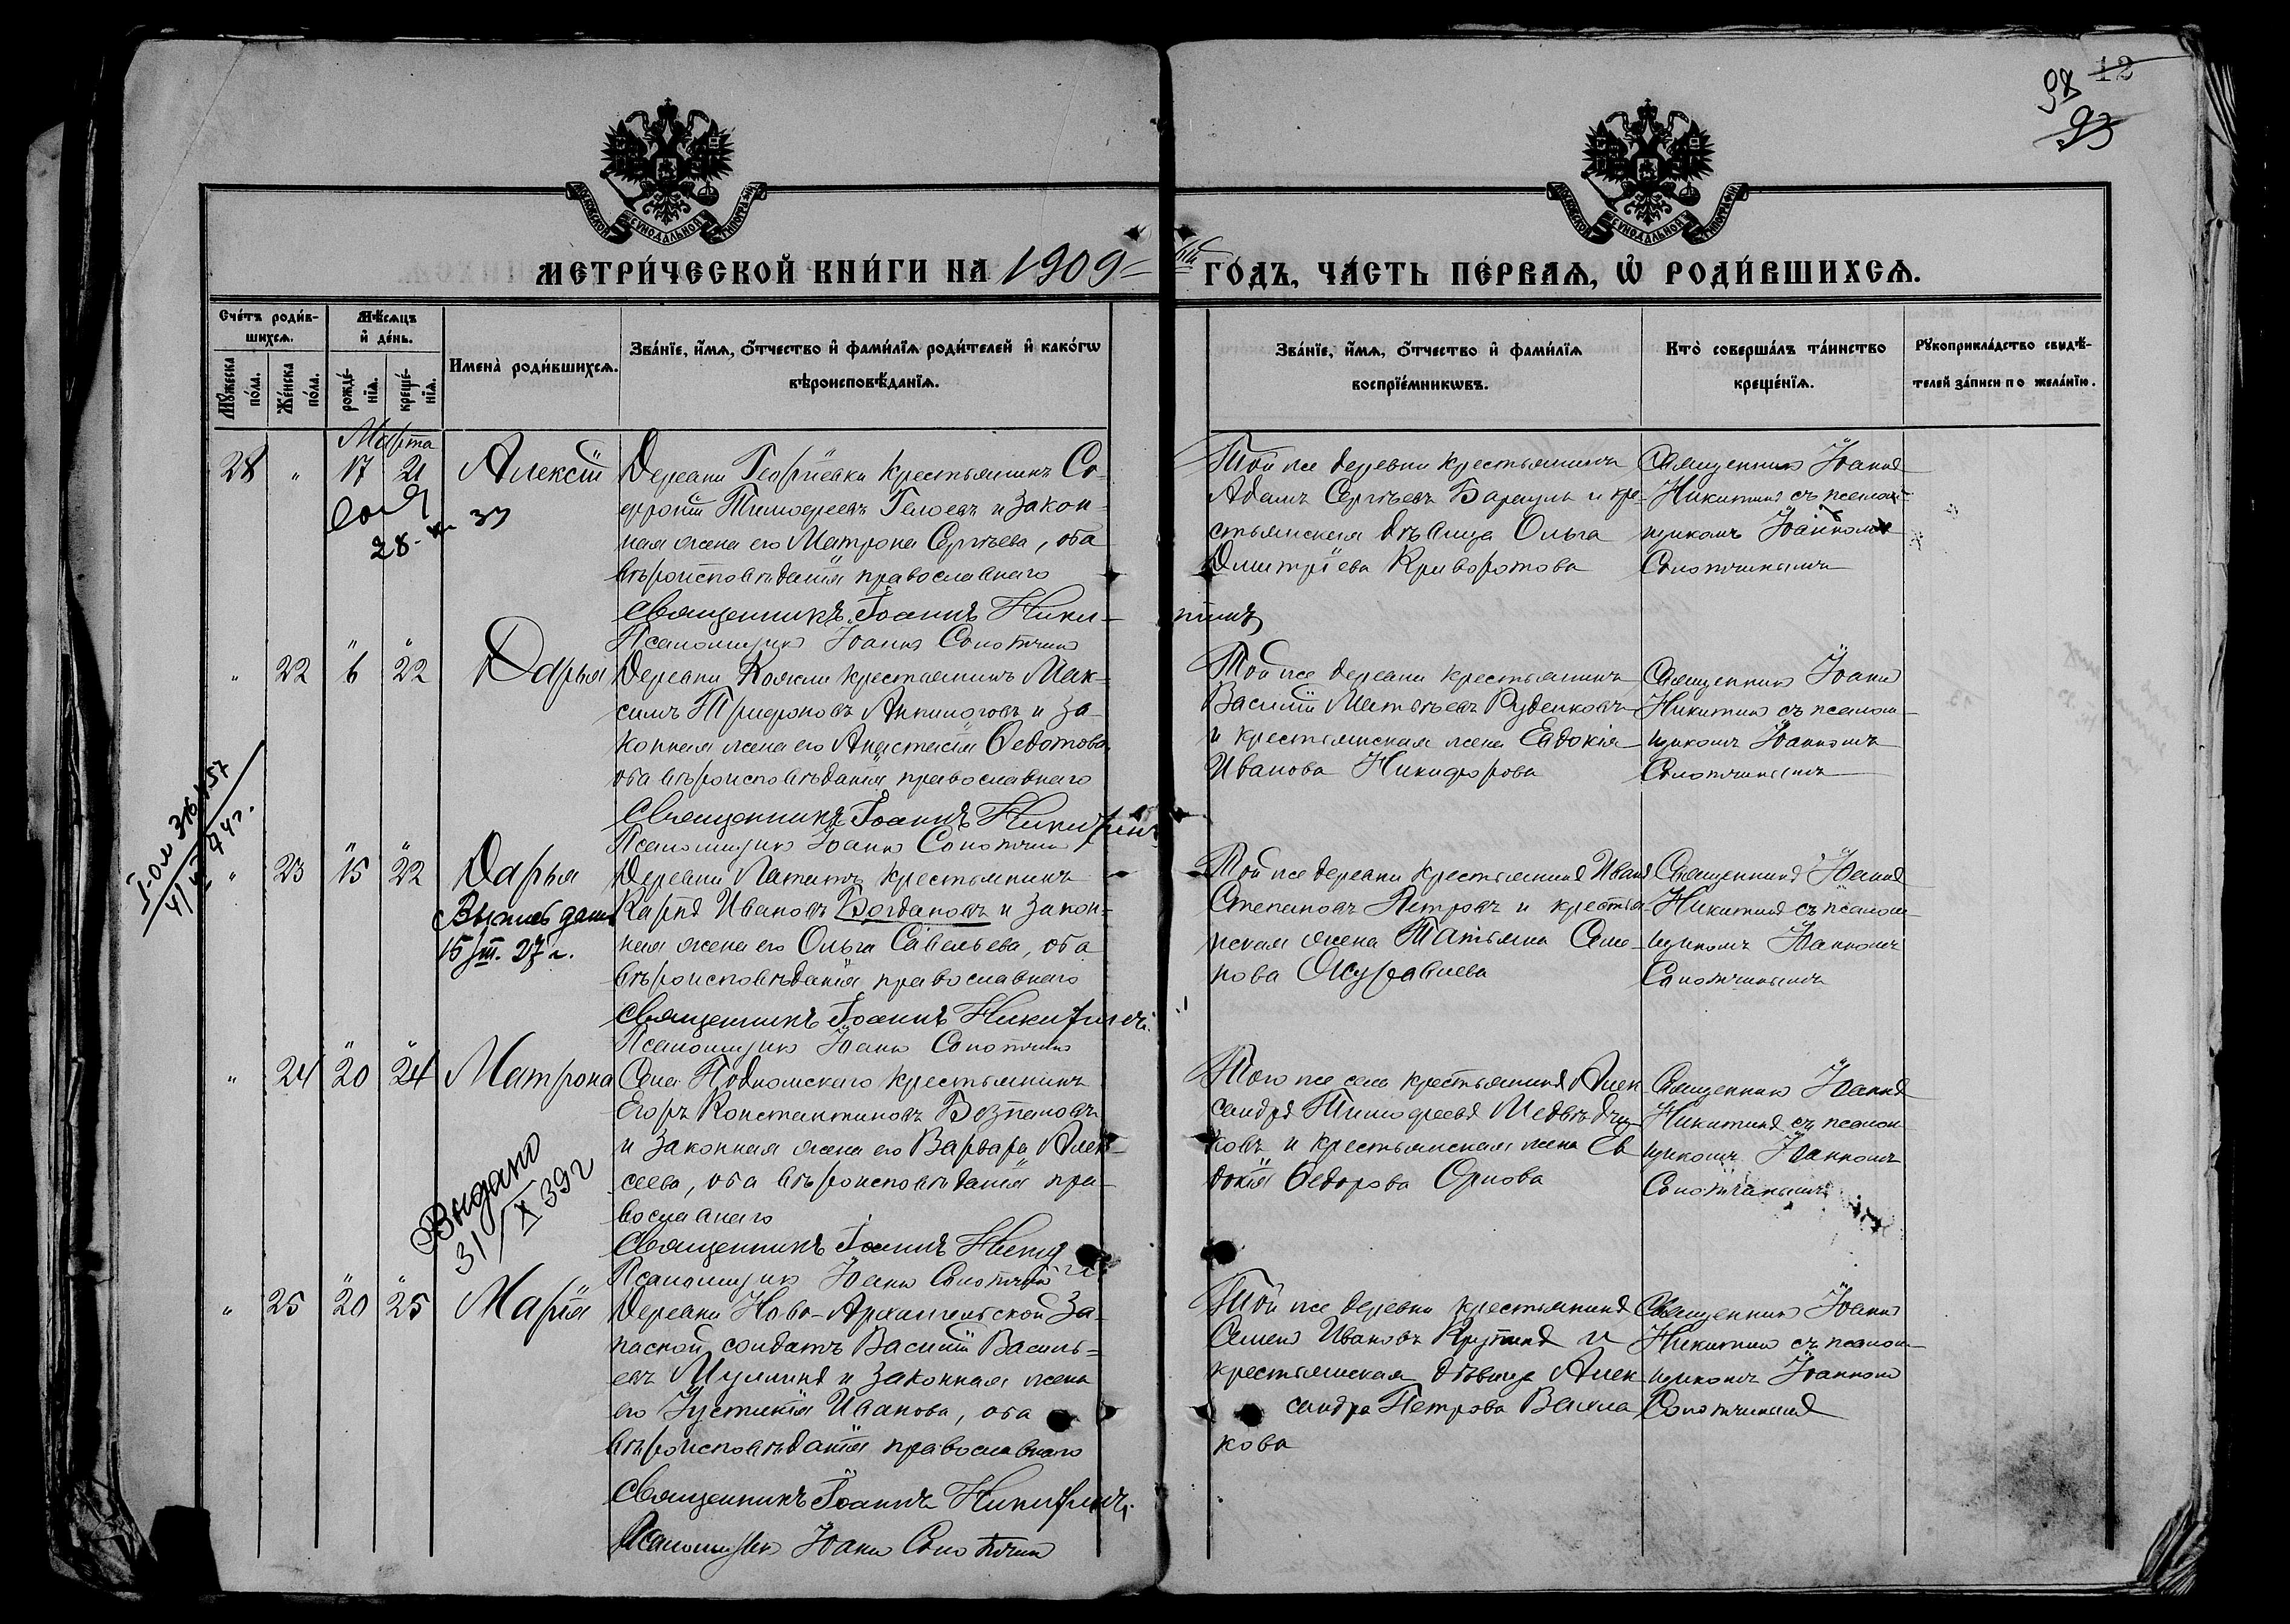 12
98
93
МОСКОВСКОЙ СѴНОДАЛЬНОЙ ТИПОГРАФІИ
МОСКОВСКОЙ СѴНОДАЛЬНОЙ ТИПОГРАФІИ
МЕТРИ́ЧЕСКОЙ КНИ́ГИ НА 1909
ГО́ДЪ, ЧА́СТЬ ПЕ́РВАѦ, Ѡ҆ РОДИ́ВШИХСѦ.
Сче́тъ роди́в-
шихсѧ.
Мѣ́сѧцъ
и҆ де́нь.
Мꙋ́жеска по́ла.
Же́нска по́ла.
рожде́-
нїѧ.
креще́-
нїѧ.
Имена̀ роди́вшихсѧ.
Зва́нїе, и҆́мѧ, ѻ҆́тчество и҆ фами́лїѧ роди́телей и҆ како́гѡ
вѣроисповѣ́данїѧ.
Зва́нїе, и҆́мѧ, ѻ҆́тчество и҆ фами́лїѧ
воспрїе́мникѡвъ.
Кто̀ соверша́лъ та́инство
креще́нїѧ.
Рꙋкоприкла́дство свидѣ́-
телей за́писи по жела́нїю.
Марта
28 " 17 21 Алексій
Деревни Георгіевки крестьянинъ Со-
фроній Тимофеевъ Гелоевъ и закон-
ная жена его Матрона Сергѣева, оба
вѣроисповѣданія православнаго
Священникъ Іоаннъ Ники-
тинъ
Псаломщикъ Іоаннъ Сопотчинъ
28 33
Той же деревни крестьянинъ
Адамъ Сергѣевъ Барсуль и кре-
стьянская дѣвица Ольга
Димитріева Криворотова
Священникъ Іоаннъ
Никитинъ съ псалом-
щикомъ Іоанномъ
Сопотчинымъ
" 22 6 22 Дарья
Деревни Кояили крестьянинъ Мак-
симъ Трифоновъ Анпилоговъ и за-
конная жена его Анастасія Ѳедотова
оба вѣроисповѣданія православнаго
Священникъ Іоаннъ Никитинъ
Псаломщикъ Іоаннъ Сопотчинъ
Той же деревни крестьянинъ
Василій Матвѣевъ Руденковъ
и крестьянская жена Евдокія
Иванова Никифорова
Священникъ Іоаннъ
Никитинъ съ псалом-
щикомъ Іоанномъ
Сопотчинымъ
" 23 15 22 Дарья
Выпись дана
15/III. 27 г.
Деревни Латышъ крестьянинъ
Карпъ Ивановъ Богдановъ и закон-
ная жена его Ольга Савельева, оба
вѣроисповѣданія православнаго
Священникъ Іоаннъ Никитинъ
Псаломщикъ Іоаннъ Сопотчинъ
Той же деревни крестьянинъ Иванъ
Степановъ Петровъ и крестья-
нская жена Татьяна Семе-
нова Журавлева
Священникъ Іоаннъ
Никитинъ съ псалом-
щикомъ Іоанномъ
Сопотчинымъ
" 24 20 24 Матрона
Выдано
31/X 39 г
Села Подломскаго крестьянинъ
Егоръ Константиновъ Безпаловъ
и законная жена его Варвара Алек-
сеева, оба вѣроисповѣданія пра-
вославнаго
Священникъ Іоаннъ Никитинъ
Псаломщикъ Іоаннъ Сопотчинъ
Того же села крестьянинъ Алек
сандръ Тимофеевъ Медвѣдчи-
ковъ и крестьянская жена Ев
докія Ѳедорова Орлова
Священникъ Іоаннъ
Никитинъ съ псалом
щикомъ Іоанномъ
Сопотчинымъ
" 25 20 25 Марія
Деревни Ново-Архангельской за-
пасной солдатъ Василій Василь-
евъ Мулинъ и законная жена
его Іустинія Иванова, оба
вѣроисповѣданія православнаго
Священникъ Іоаннъ Никитинъ
Псаломщикъ Іоаннъ Сопотчинъ
Той же деревни крестьянинъ
Семенъ Ивановъ Крутинъ и
крестьянская дѣвица Алек
сандра Петрова Васила
кова
Священникъ Іоаннъ
Никитинъ съ псалом-
щикомъ Іоанномъ
Сопотчинымъ